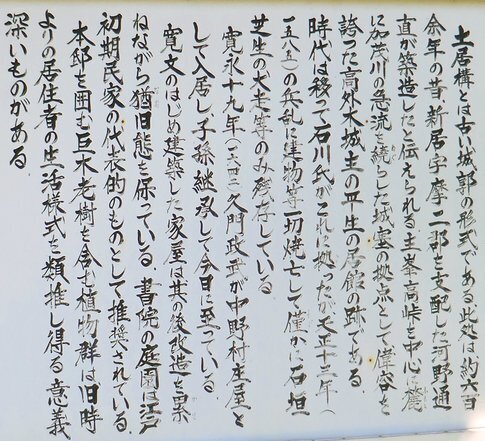 土居構とは古い城郭の形式である此処は約六百
余年の昔新居宇摩二郡を支配した河野通
直が築造したと伝えられる主峯高峠を中心に麓
に加茂川の急流を繞らした城塞の拠点として偉容を
誇った高外木城主の平生の居館の跡である
時代は移って石川氏がこれに拠ったが天正十三年（
一五八五）の兵乱に建物等一切焼亡して僅かに石垣
芝生の犬走等のみ残存している
寛永十九年（一六四二）久門政武が中野村庄屋と
して入居し、子孫継承して今日に至っている
寛文のはじめ建築した家屋は其の後改造を累
ねながら猶旧態を保っている。書院の庭園は江戸
初期民家の代表的のものとして推奨されている
本邸を囲む巨木老樹を含む植物群は旧時
よりの居住者の生活様式を類推し得る意義
深いものがある